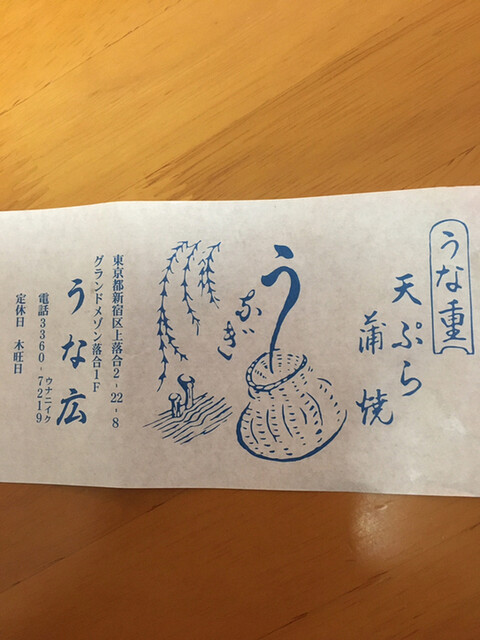 うな重
天ぷら
蒲焼
うなぎ
東京都新宿区上落合2-22-8
グランドメゾン落合1F
うな広
ウナニイク
電話3360-7219
定休日 木旺日